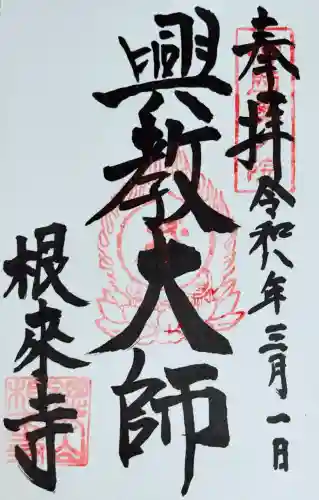 奉拝
令和八年三月一日
興教大師
根來寺